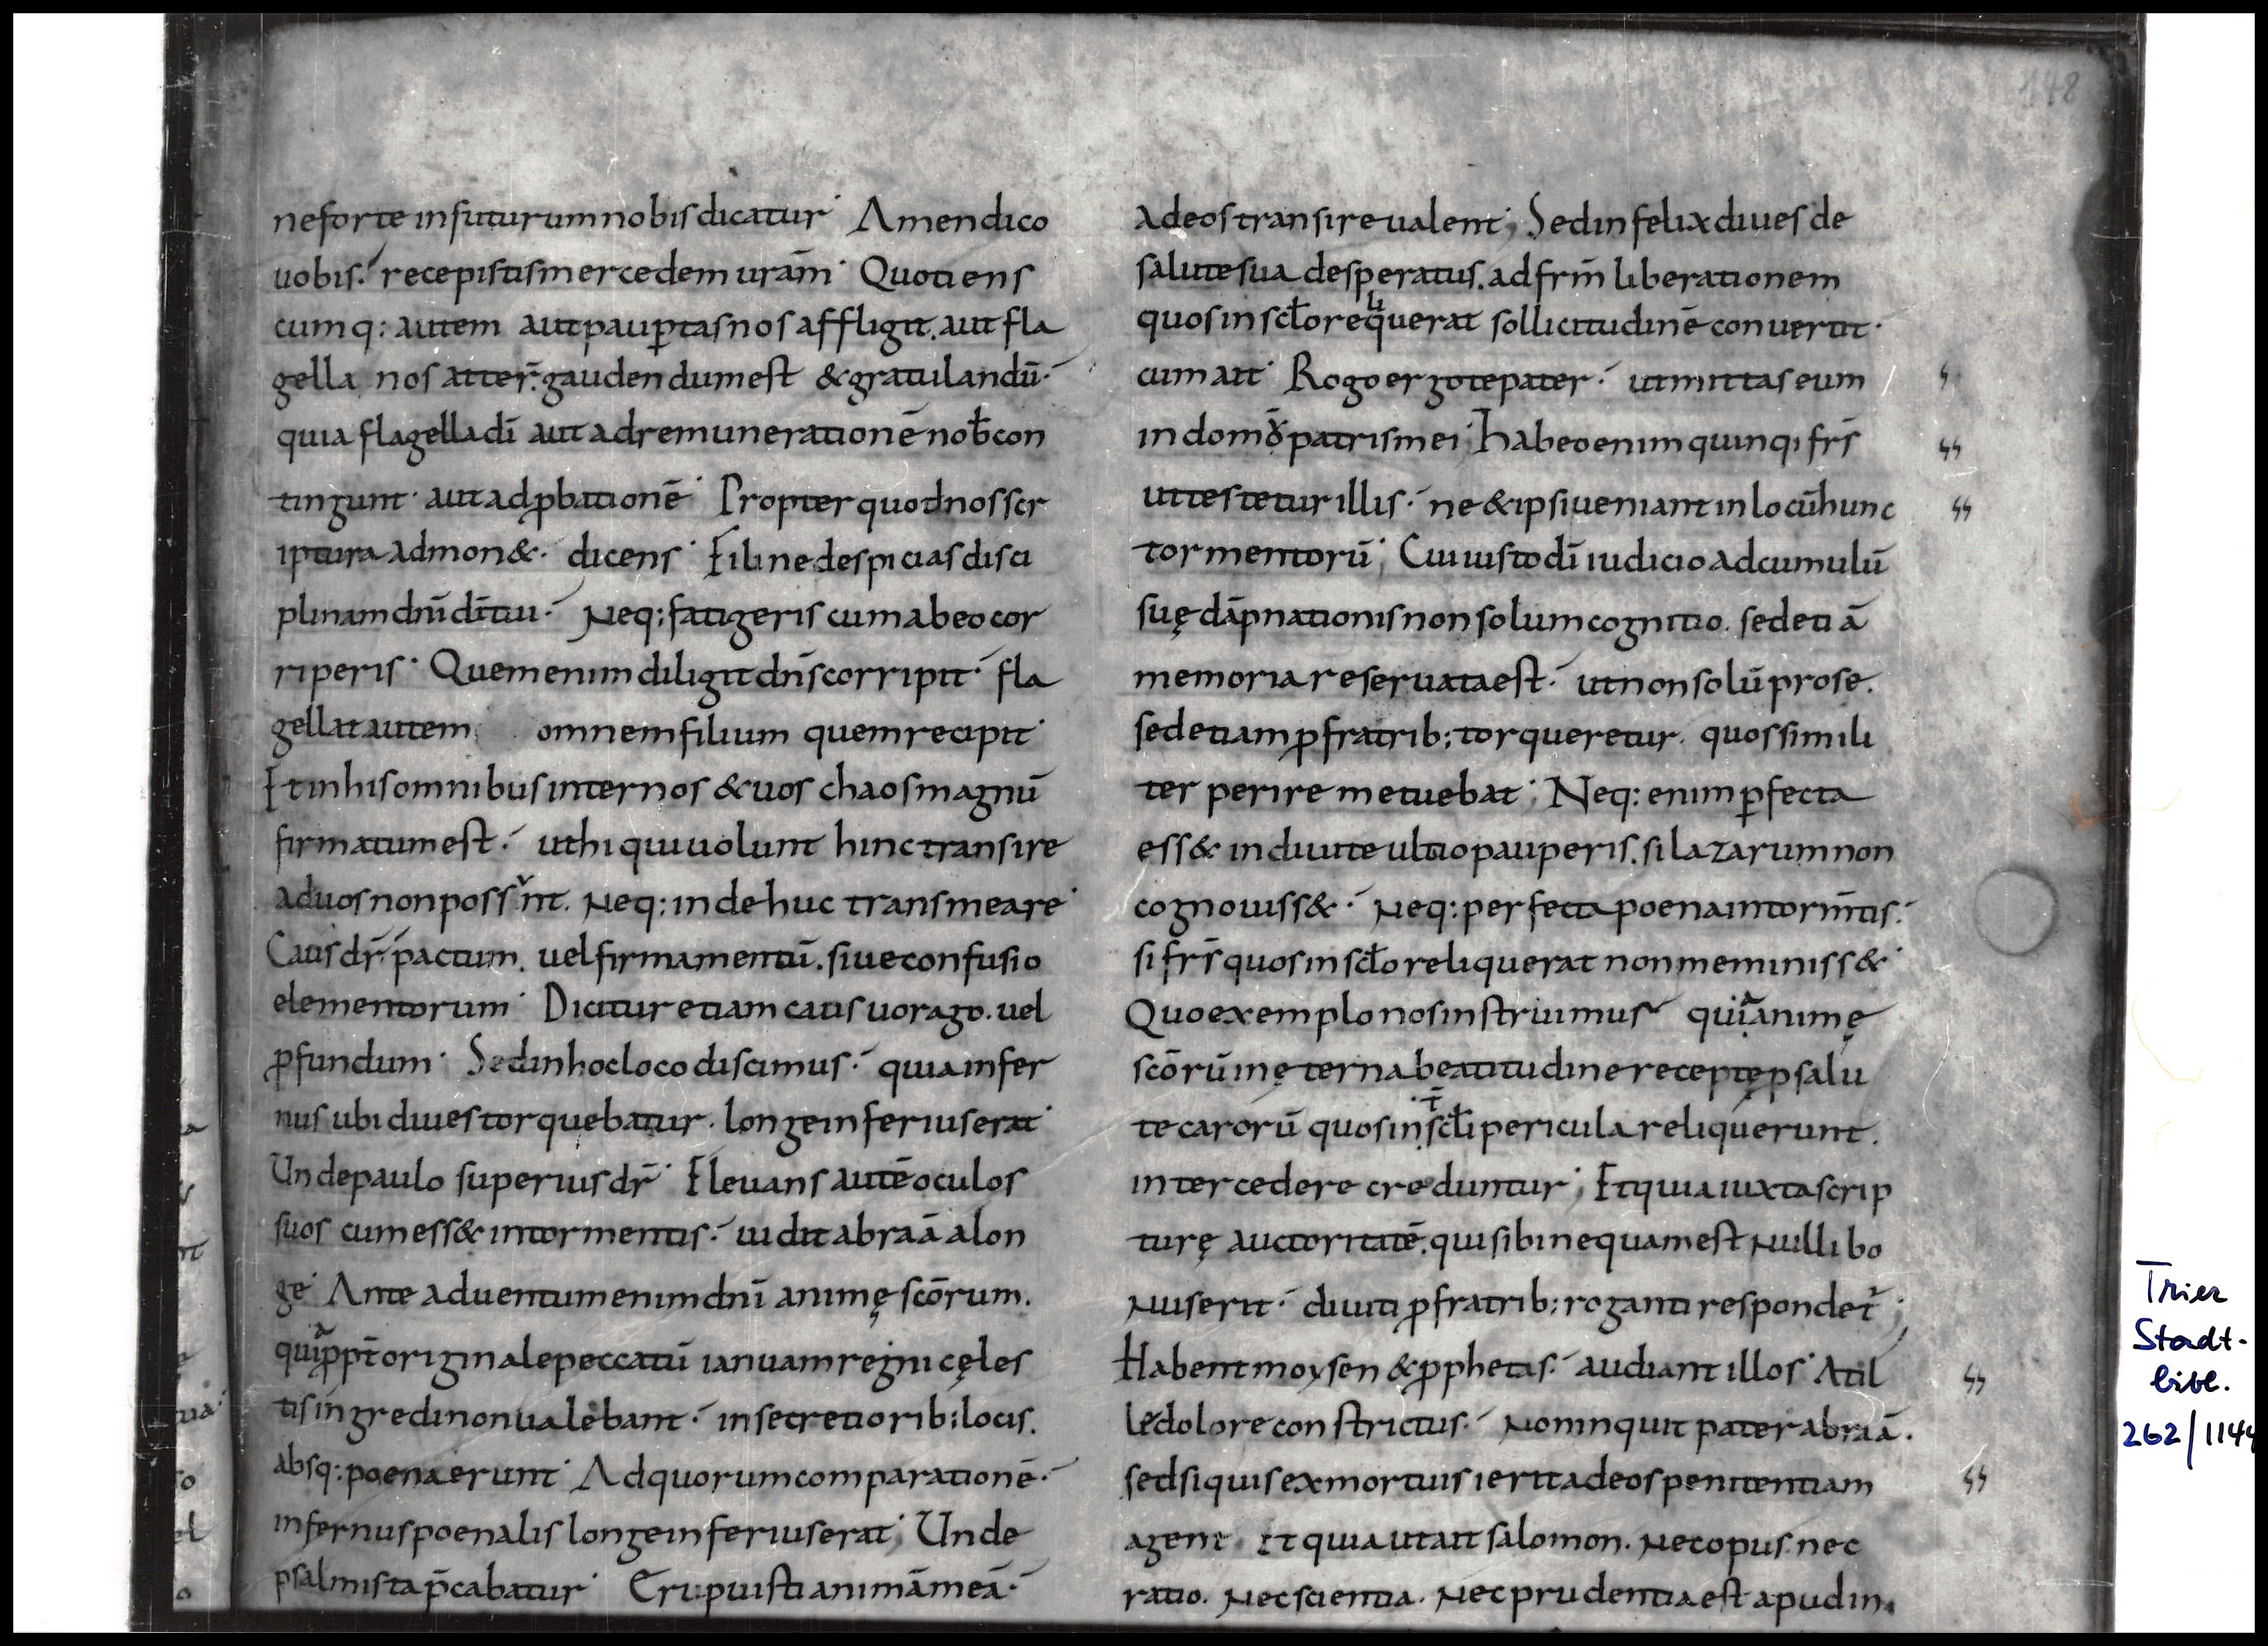 148
neforte infuturum nobis dicatur· Amendico
uobis.' recepistis mercedem uram̄· Quotiens
cumq: autem aut paup̲tas nos affligit. aut fla
gella nos atter̄.' gaudendum est & gratulandū·'
quia flagella dī aut ad remunerationē nob̄ con
tingunt· aut ad p̲bationē· Propter quod nos scr
iptura admon&· dicens· Fili ne despicias disci
plinam dnī dr̄ tiui·' Neq: fatigeris cum ab eo cor
riperis· Quem enim diligit dn̄s corripit·' fla
gellat autem omnem filium quem recipit·
Et in his omnibus inter nos & uos chaos magnū
firmatum est·' ut hi qui uolunt hinc transire
ad uos non possint. Neq: inde huc transmeare·
Caus dr̄·' pactum. uel firmamentū. siue confusio
elementorum· Dicitur etiam caus uorago. uel
p̲fundum· Sed in hoc loco discimus·' quia infer
nus ubi diues torquebatur. longe inferius erat·
Unde paulo superius dr̄· Eleuans autē oculos
suos cum ess& in tormentis·' uidit abraā alon
ge· Ante aduentum enim dnī animę scōrum.
quia ppt̄ originale peccatū ianuam regni cęles
tis ingredi non ualebant·' in secretiorib: locis.
absq: poena erunt· Ad quorum comparationē·'
infernus poenalis longe inferius erat; Unde
psalmista p̄cabatur· Eripuisti animā meā·'
ad eos transire ualent; Sed infelix diues de
salute sua desperatus. ad frm̄ liberationem
quos in scl̄o reliquerat sollicitudinē conuertit·
cum ait· Rogo ergo te pater·' ut mittas eum
in domō patris mei· habeo enim quinq; frs̄
ut testetur illis·' ne & ipsi ueniant in locū hunc
tormentorū; Cui iusto dī iudicio ad cumulū
suę dāpnationis non solum cognitio. sed etiā
memoria reseruata est·' ut non solū pro se.
sed etiam p̲ fratrib: torqueretur. quos simili
ter perire metuebat; Neq: enim p̲fecta
ess& in diuite ultio pauperis. si lazarum non
cognouiss&·' Neq: perfecta poena in torm̄tis.'
si frs̄ quos in scl̄o reliquerat non meminiss&·
Quo exemplo nos instruimus quia animę
scōrū in ęterna beatitudine receptę p̲ salu
te carorū quos int̄ scl̄i pericula reliquerunt.
intercedere creduntur; Et quia iuxta scrip
turę auctoritatē. qui sibi nequam est Nulli bo
Nus erit·' diuiti p̲ fratrib: roganti respondet̄;
Habent moysen & p̲phetas·' audiant illos· At il
le dolore constrictus·' Non inquit pater abraā.
sed si quis ex mortuis ierit ad eos penitentiam
agent. Et quia ut ait salomon. Nec opus nec
ratio. Nec scientia. Nec prudentia est apud in
Trier
Stadt-
bibl.
262/1144